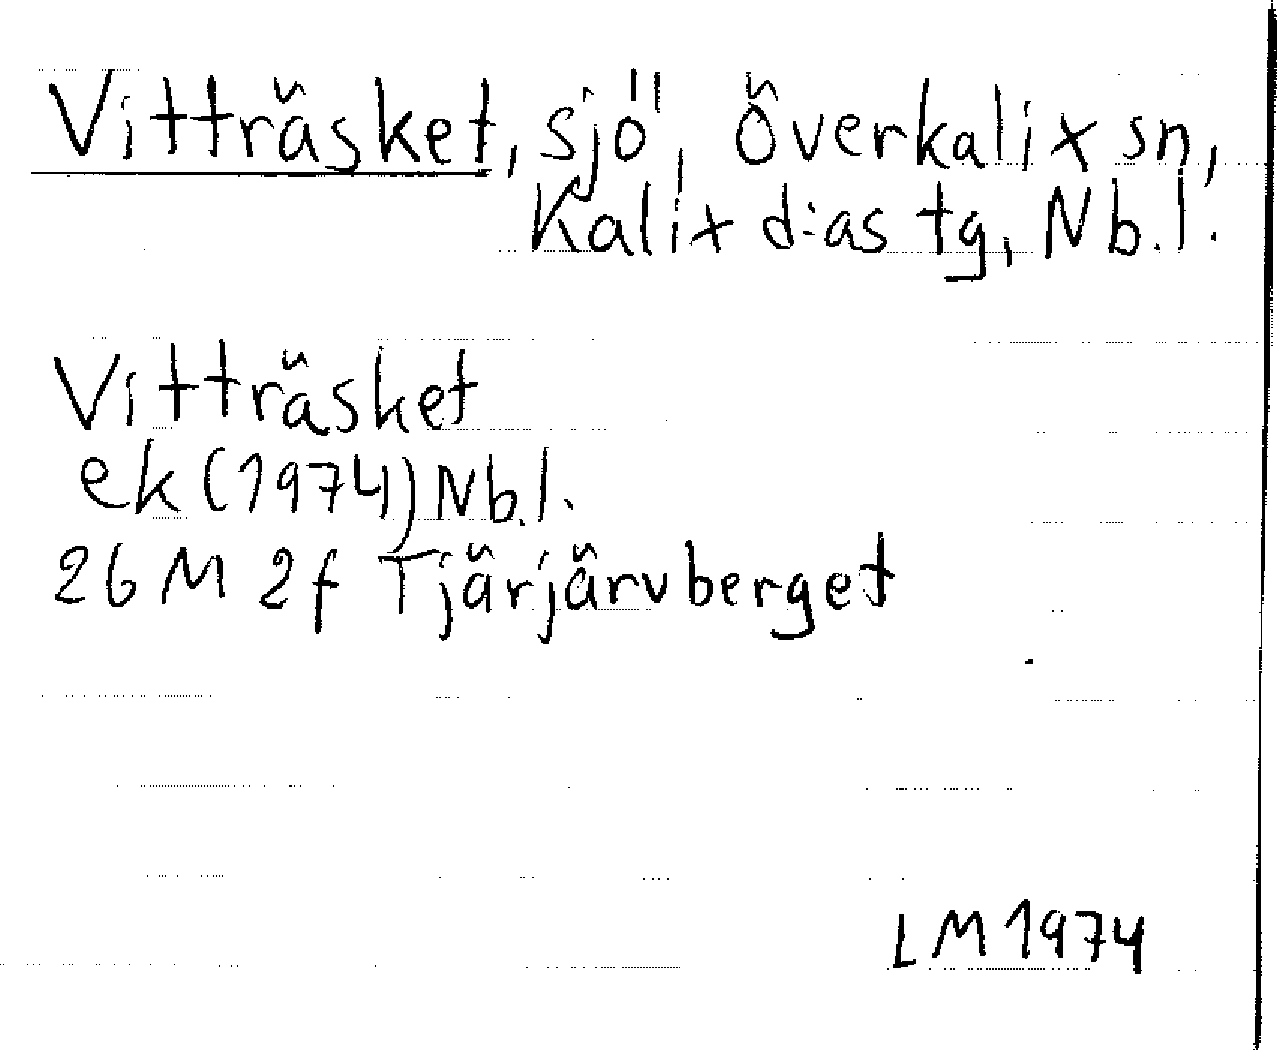 Vitträsket, sjö, Överkalix sn,
Kalix d:as tg, Nb.l.
Vitträsket
ek (1974) Nb.l.
26 M 2f Tjärjärvberget
LM 1974